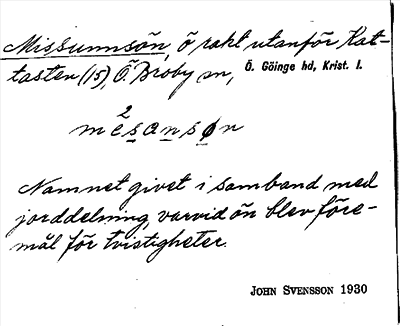 Missunnsön, ö rakt utanför Kat-
tasten (15), Ö. Broby sn, Ö. Göinge hd, Krist. l.
me²sansøn
Namnet givet i samband med
jorddelning, varvid ön blev före-
mål för tvistigheter.
JOHN SVENSSON 1930